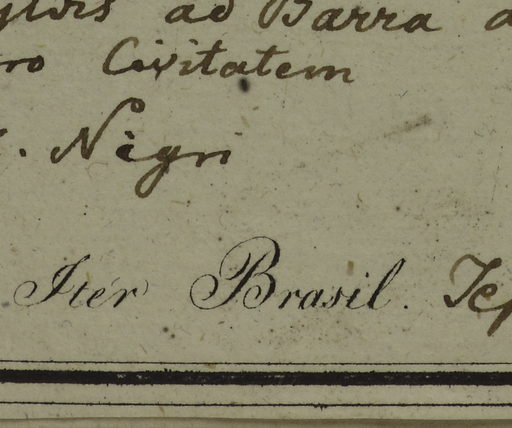 ad Barra
Civitatem
Nigri
Iter Brasil.